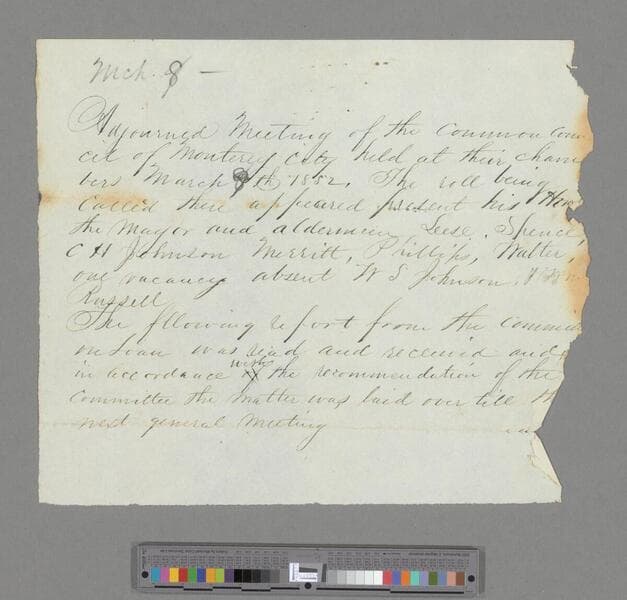 Mch. 8 —
Adjourned Meeting of the Common Coun
cil of Monterey City held at their cham
bers March 8th 1852. The roll being
Called there appeared present his Hon
the Mayor and aldermen Leese, Spence,
C H Johnson Merritt, Phillips, Watter,
one vacancy absent W S Johnson,
Russell
The fllowing report from the Commi
on Loan was read and received and
in accordance with the recommendation of the
Committee the matter was laid over till th
next general Meeting